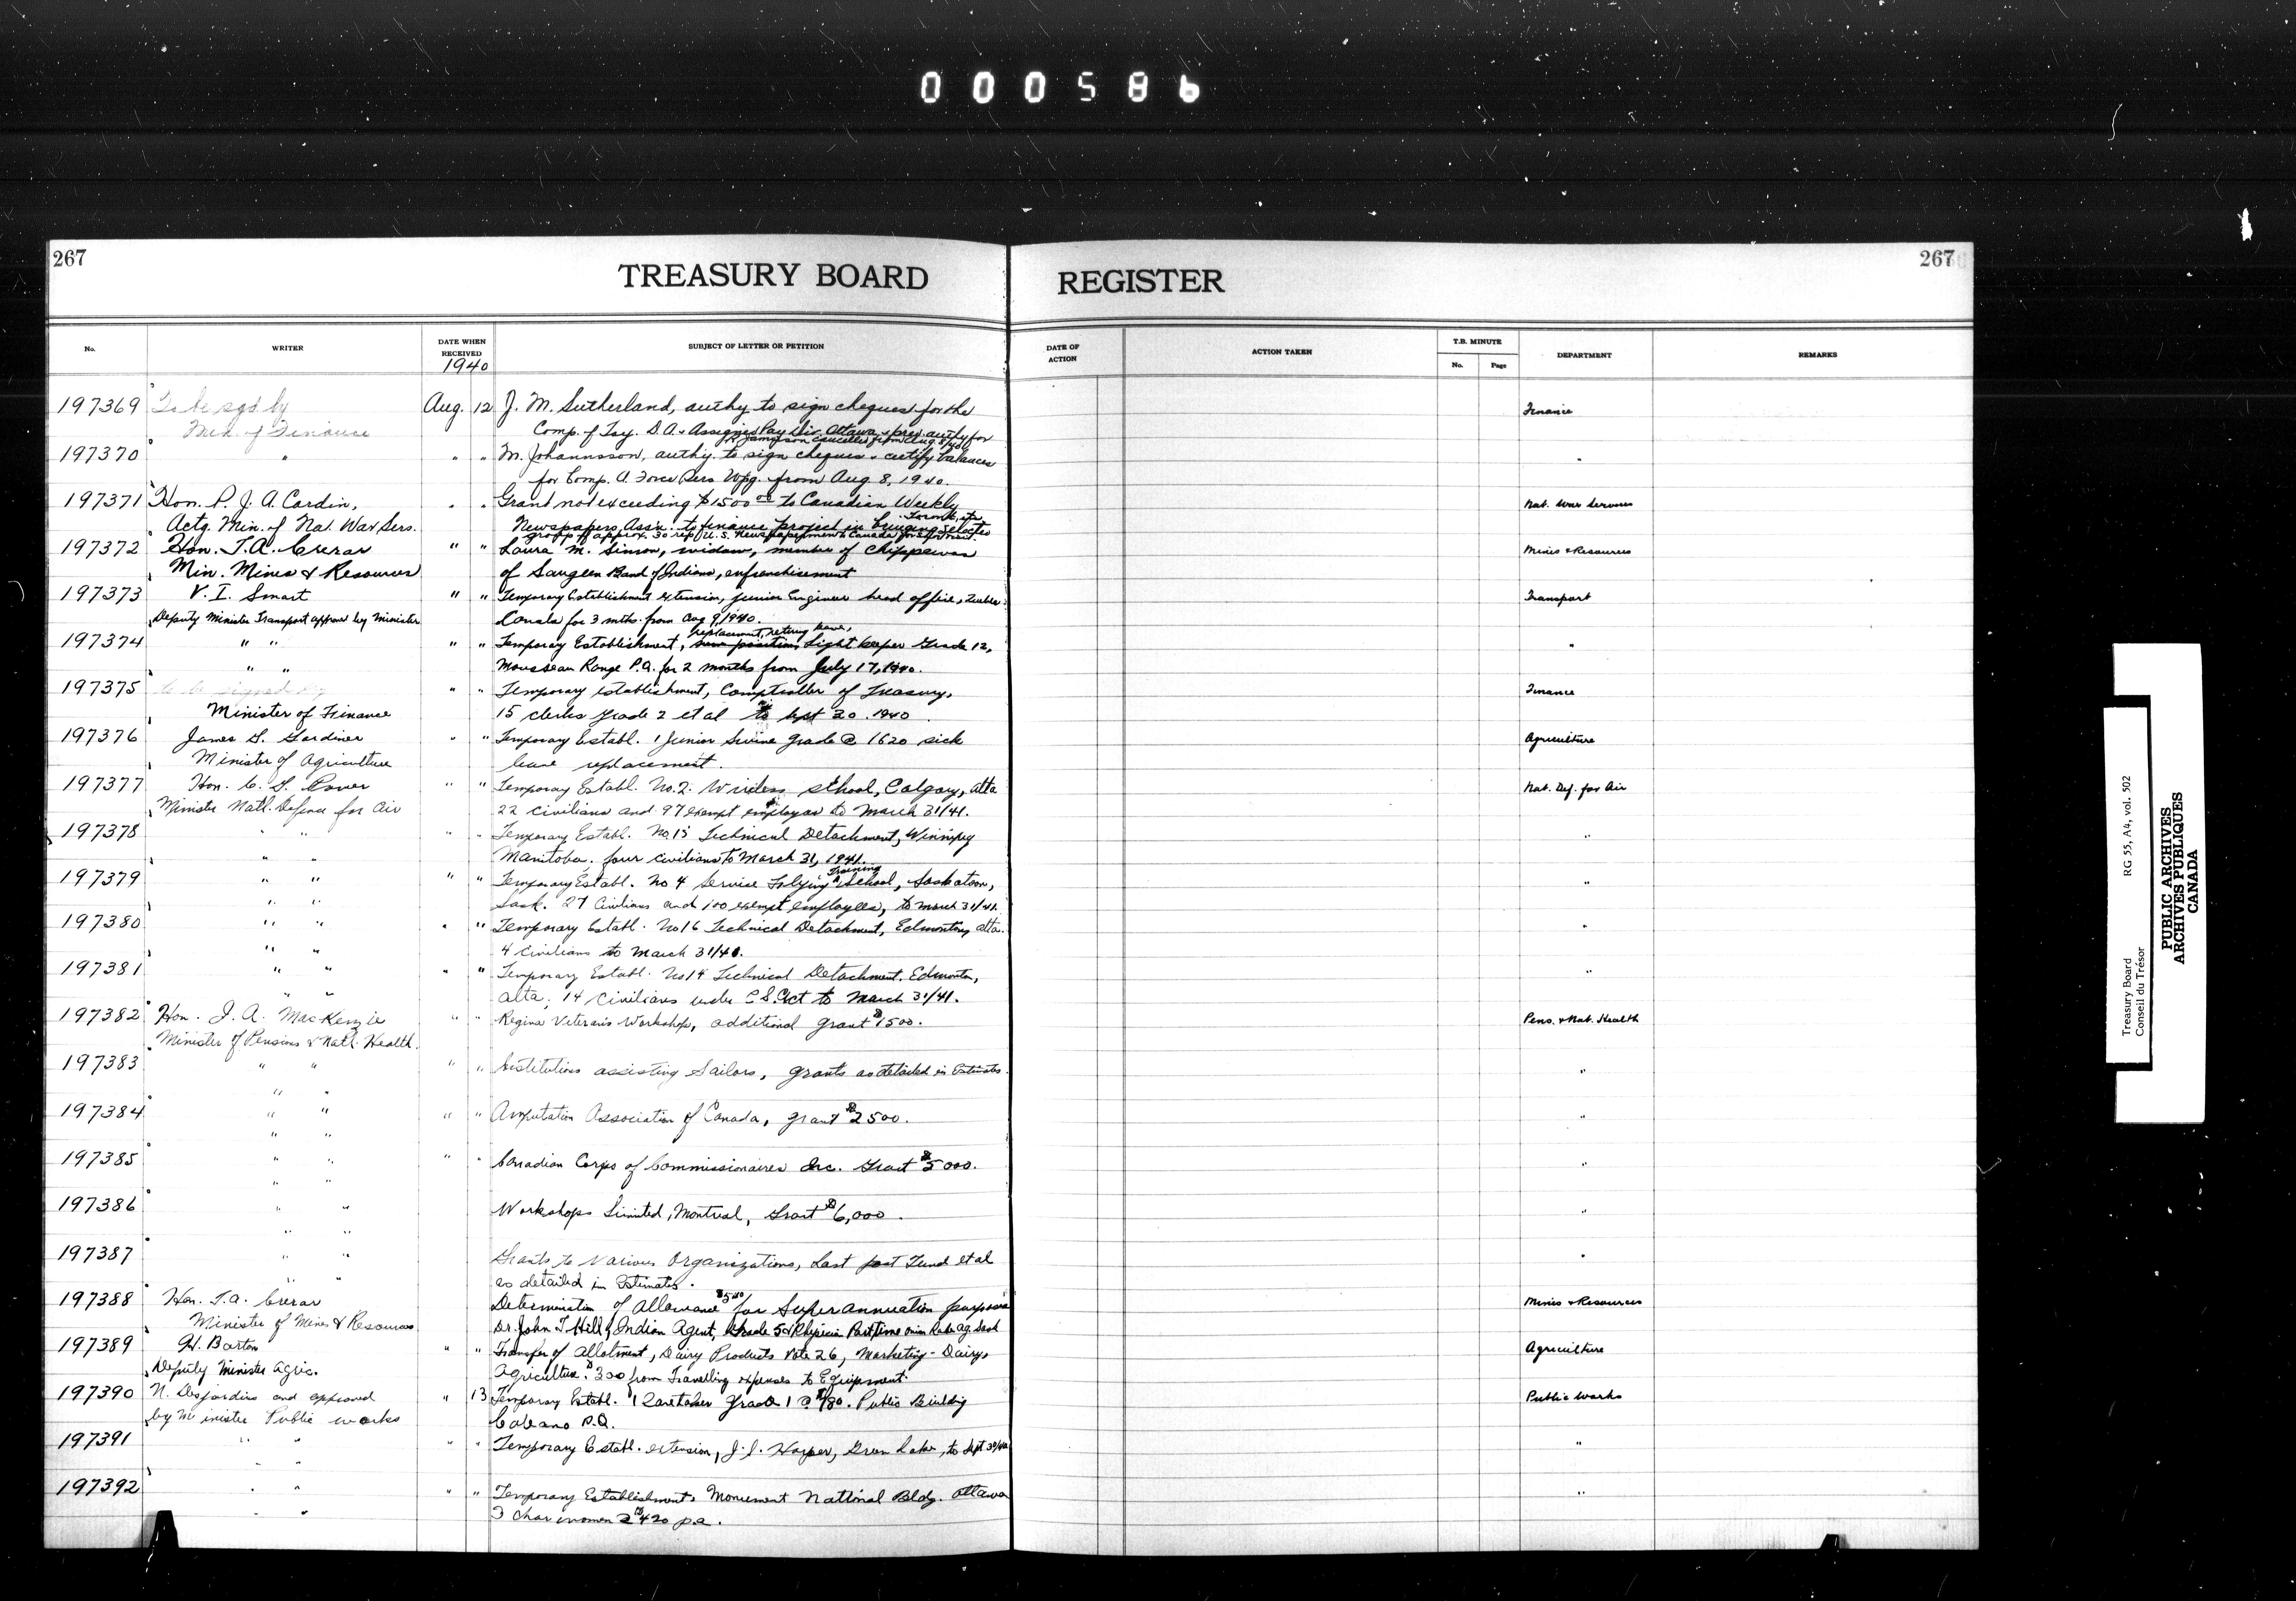 000586
267
TREASURY BOARD REGISTER
267
No. WRITER DATE WHEN RECEIVED SUBJECT OF LETTER OR PETITION DATE OF ACTION ACTION TAKEN T.B. MINUTE No. Page DEPARTMENT REMARKS
1940
197369 To be sgd by Aug. 12 J. M. Sutherland, authy to sign cheques for the Finance
Min. of Finance Comp. of Tsy. D.A. & Assigned Pay Div. Ottawa & prev. authy for
Jamieson cancelled from Aug. 8/40
197370 " " " M. Johannsson, authy. to sign cheques & certify balances "
for Comp. A. Force Pers Wpg. from Aug 8, 1940.
197371 Hon. P. J. A. Cardin, " " Grant not exceeding $1500 00 to Canadian Weekly Nat. War Services
Actg. Min. of Nat. War Sers. Newspapers Assn. Toronto, to finance project in bringing selected
group of approx. 30 rep. U.S. Newspapermen to Canada for
197372 Hon. T. A. Crerar " " Laura M. Simon, widow, member of Chippewas Mines & Resources
Min. Mines & Resources of Saugeen Band of Indians, enfranchisement
197373 V. I. Smart " " Temporary Establishment extension, junior Engineer head office, Quebec Transport
Deputy Minister Transport approved by Minister Canals for 3 mths. from Aug 9, 1940.
197374 " " " " Temporary Establishment, new position, replacement, retiring leave, Light keeper Grade 12, "
" " Mousseau Range P.Q. for 2 months from July 17, 1940.
197375 to be signed by " " Temporary establishment, Comptroller of Treasury, Finance
Minister of Finance 15 clerks grade 2 et al to Sept 20. 1940.
197376 James G. Gardiner " " Temporary Establ. 1 Junior Swine Grader @ 1620 sick Agriculture
Minister of Agriculture leave replacement.
197377 Hon. C. G. Power " " Temporary Establ. No. 2. Wireless school, Calgary, Alta Nat. Def. for Air
Minister Natl. Defence for Air 22 civilians and 97 exempt employees to March 31/41.
197378 " " " " Temporary Establ. No. 15 Technical Detachment, Winnipeg "
" " Manitoba. four civilians to March 31, 1941.
197379 " " " " Temporary Establ. No 4 Service Flying Training School, Saskatoon, "
" " Sask. 27 Civilians and 100 exempt employees, to March 31/41.
197380 " " " " Temporary Establ. No 16 Technical Detachment, Edmonton, Alta. "
" " 4 Civilians to March 31/41.
197381 " " " " Temporary Establ. No 14 Technical Detachment. Edmonton, "
" " Alta, 14 Civilians under C.S. Act to March 31/41.
197382 Hon. I. A. MacKenzie " " Regina Veterans Workshop, additional grant $1500. Pens. & Nat. Health
Minister of Pensions & Natl. Health.
197383 " " " " Institutions assisting Sailors, grants as detailed in Estimates. "
" "
197384 " " " " Amputation Association of Canada, grant $2500. "
" "
197385 " " " " Canadian Corps of Commissionaires Inc. Grant $5000. "
" "
197386 " " Workshops Limited, Montreal, Grant $6,000. "
" "
197387 " " Grants to Various Organizations, Last post Fund et al "
" " as detailed in Estimates.
197388 Hon. T. A. Crerar Determination of Allowance $540 for Superannuation purposes Mines & Resources
Minister of Mines & Resources Dr. John T Hill, Indian Agent, Grade 5 & Physician Part time Onion Lake Ag. Sask
197389 H. Barton " " Transfer of Allotment, Dairy Products Vote 26, Marketing - Dairy, Agriculture
Deputy Minister Agric. Agriculture. $300 from Travelling expenses to Equipment.
197390 N. Desjardins and approved " 13 Temporary Establ. 1 Caretaker Grade 1 @ $180. Public Building Public Works
by Minister Public works Cabano P.Q.
197391 " " " " Temporary Establ. extension, J. I. Harper, Green Lake, to Sept 30/40 "
" "
197392 " " " " Temporary Establishment, Monument National Bldg. Ottawa "
" " 3 Char women @ $420 p.a.
Treasury Board RG 55, A4, vol. 502
Conseil du Trésor
PUBLIC ARCHIVES
ARCHIVES PUBLIQUES
CANADA